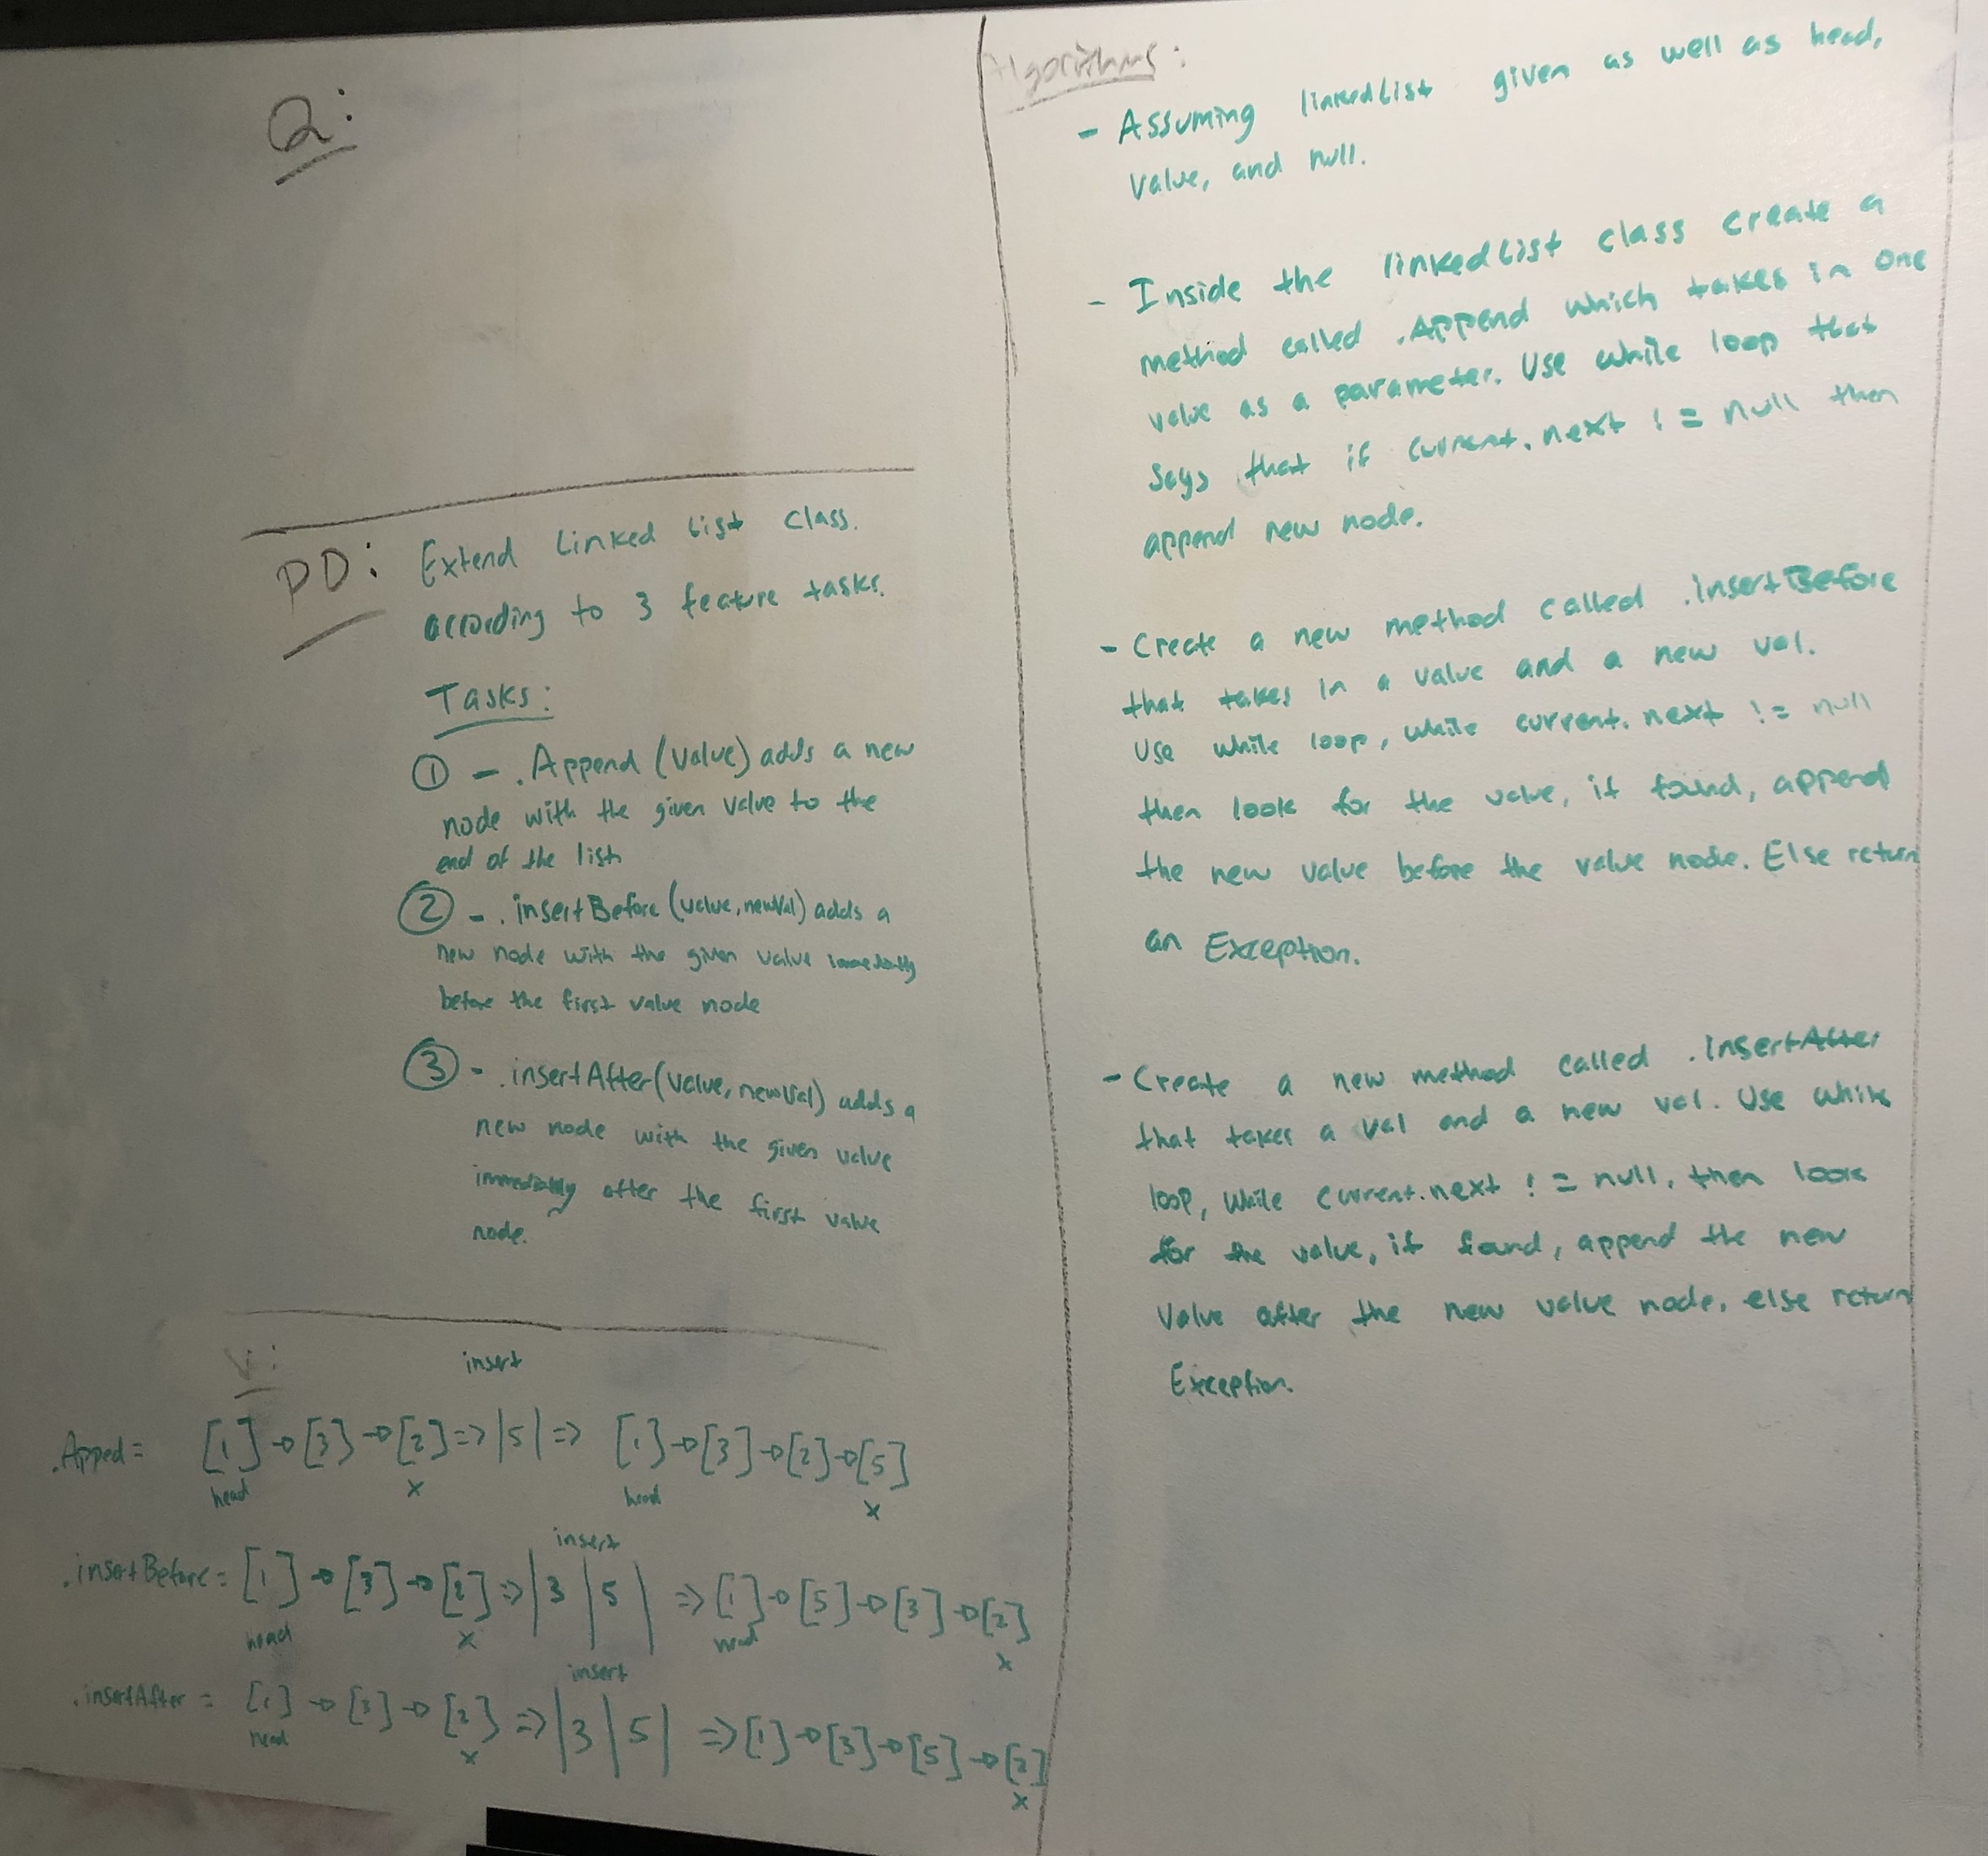 Q:
PD: Extend Linked List Class.
according to 3 feature tasks.
Tasks:
① - .Append (value) adds a new
node with the given value to the
end of the list
② - .insertBefore (value, newVal) adds a
new node with the given value immediately
before the first value node
③ - .insertAfter (value, newVal) adds a
new node with the given value
immediately after the first value
node.
V:
insert
.Apped = [1] → [3] → [2] => |5| => [1] → [3] → [2] → [5]
head x head x
insert
.insertBefore = [1] → [3] → [2] => |3|5| => [1] → [5] → [3] → [2]
head x head x
insert
.insertAfter = [1] → [3] → [2] => |3|5| => [1] → [3] → [5] → [2]
head x x
Algorithms:
- Assuming linkedList given as well as head,
value, and null.
- Inside the linkedList class create a
method called .Append which takes in one
value as a parameter. Use while loop that
says that if current.next != null then
append new node.
- Create a new method called .insertBefore
that takes in a value and a new val.
Use while loop, while current.next != null
then look for the value, if found, append
the new value before the value node. Else return
an Exception.
- Create a new method called .insertAfter
that takes a val and a new val. Use while
loop, while current.next != null, then look
for the value, if found, append the new
value after the new value node, else return
Exception.